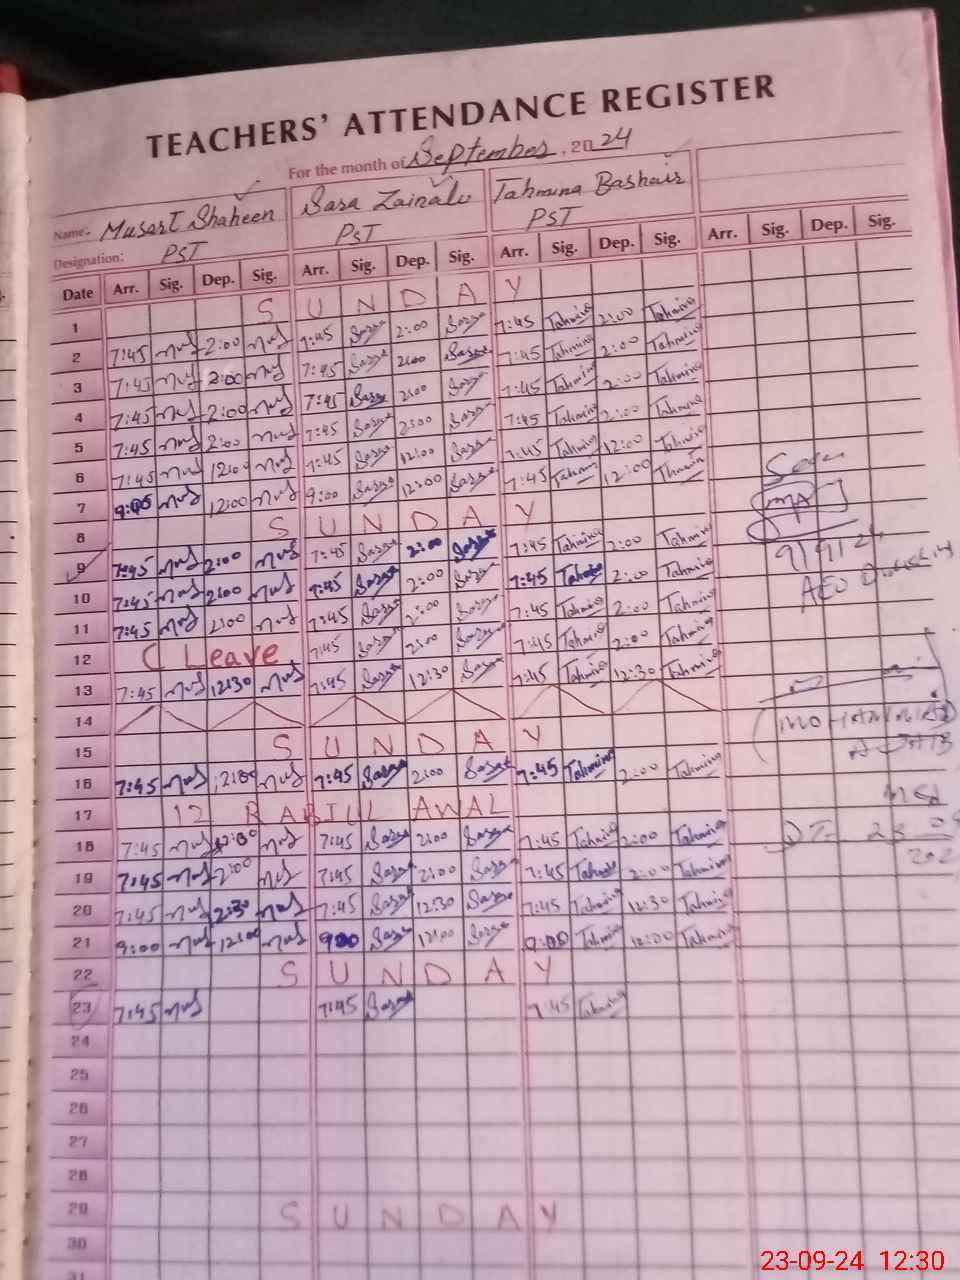 TEACHERS' ATTENDANCE REGISTER
For the month of September, 2024
Name:- Musart Shaheen Sara Zainab Tahmina Bashair
Designation: PST PST PST
Date Arr. Sig. Dep. Sig. Arr. Sig. Dep. Sig. Arr. Sig. Dep. Sig. Arr. Sig. Dep. Sig.
1 SUNDAY
2 7:45 Mus 2:00 Mus 7:45 Sara 2:00 Sara 7:45 Tahmina 2:00 Tahmina
3 7:45 Mus 2:00 Mus 7:45 Sara 2:00 Sara 7:45 Tahmina 2:00 Tahmina
4 7:45 Mus 2:00 Mus 7:45 Sara 2:00 Sara 7:45 Tahmina 2:00 Tahmina
5 7:45 Mus 2:00 Mus 7:45 Sara 2:00 Sara 7:45 Tahmina 2:00 Tahmina
6 7:45 Mus 12:00 Mus 7:45 Sara 12:00 Sara 7:45 Tahmina 12:00 Tahmina
7 9:00 Mus 12:00 Mus 9:00 Sara 12:00 Sara 7:45 Tahmin 12:00 Thmain
8 SUNDAY
9 7:45 Mus 2:00 Mus 7:45 Sara 2:00 Sara 7:45 Tahmina 2:00 Tahmina
10 7:45 Mus 2:00 Mus 7:45 Sara 2:00 Sara 7:45 Tahmina 2:00 Tahmina
11 7:45 Mus 2:00 Mus 7:45 Sara 2:00 Sara 7:45 Tahmina 2:00 Tahmina
12 C Leave 7:45 Sara 2:00 Sara 7:45 Tahmina 2:00 Tahmina
13 7:45 Mus 12:30 Mus 7:45 Sara 12:30 Sara 7:45 Tahmina 12:30 Tahmina
14
15 SUNDAY
16 7:45 Mus Mus 7:45 Sara 2:00 Sara 7:45 Tahmina 2:00 Tahmina
17 12 RABIUL AWAL
18 7:45 Mus Mus 7:45 Sara 2:00 Sara 7:45 Tahmina 2:00 Tahmina
19 7:45 Mus 2:00 Mus 7:45 Sara 2:00 Sara 7:45 Tahmina 2:00 Tahmina
20 7:45 Mus 2:30 Mus 7:45 Sara 12:30 Sara 7:45 Tahmina 12:30 Tahmina
21 9:00 Mus 12:00 Mus 900 Sara 12:00 Sara 9:00 Tahmina 12:00 Tahmina
22 SUNDAY
23 7:45 Mus 7:45 Sara 7:45 Tahmina
24
25
26
27
28
29 SUNDAY
30
31
Seen
9/9/24
AEO
23-09-24 12:30